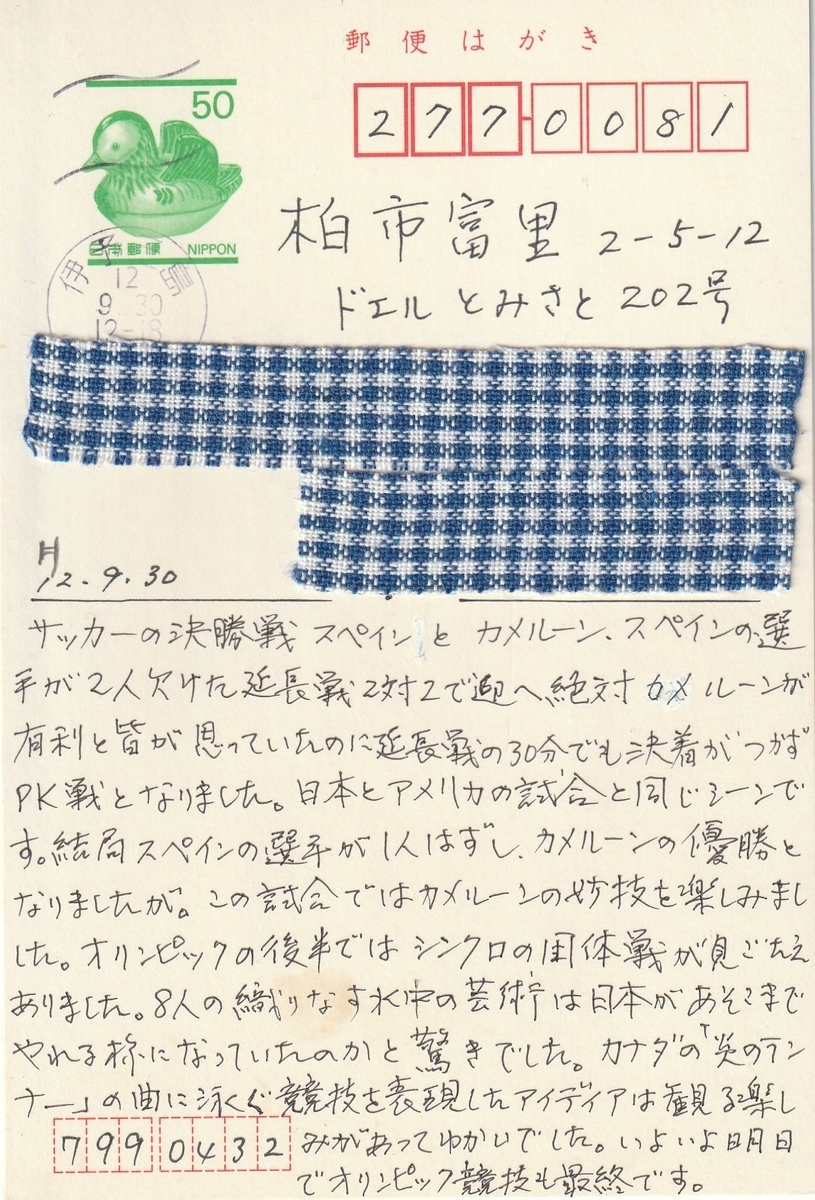 郵便はがき
50
日本郵便 NIPPON
277-0081
柏市富里 2-5-12
ドエルとみさと 202号
伊予
12
9 30
12-18
H12.9.30
サッカーの決勝戦 スペインとカメルーン、スペインの選
手が2人欠けた延長戦2対2で迎へ絶対カメルーンが
有利と皆が思っていたのに延長戦の30分でも決着がつかず
PK戦となりました。日本とアメリカの試合と同じシーンで
す。結局スペインの選手が1人はずし、カメルーンの優勝と
なりましたが。この試合ではカメルーンの妙技を楽しみまし
した。オリンピックの後半ではシンクロの団体戦が見ごたえ
ありました。8人の織りなす水中の芸術は日本があそこまで
やれる様になっていたのかと驚きでした。カナダの「炎のラン
ナー」の曲に泳ぐ競技を表現したアイディアは観る楽し
みがあってゆかいでした。いよいよ明日
でオリンピック競技も最終です。
7990432